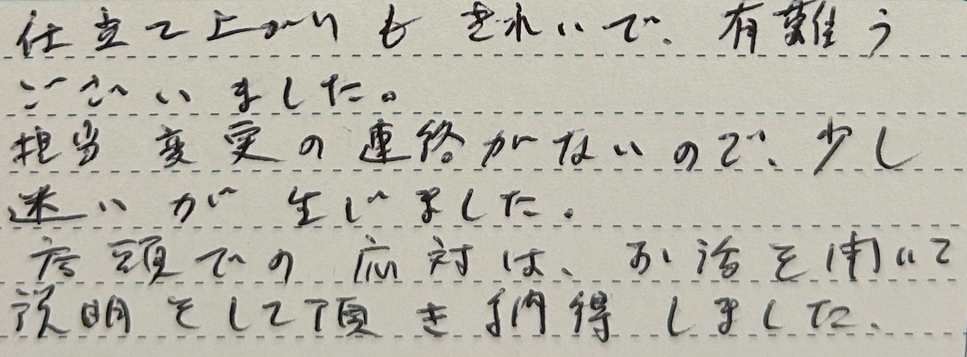 仕立て上がりもきれいで、有難う
ございました。
担当変更の連絡がないので、少し
迷いが生じました。
店頭での応対は、お話を聞いて
説明をして頂き納得しました。